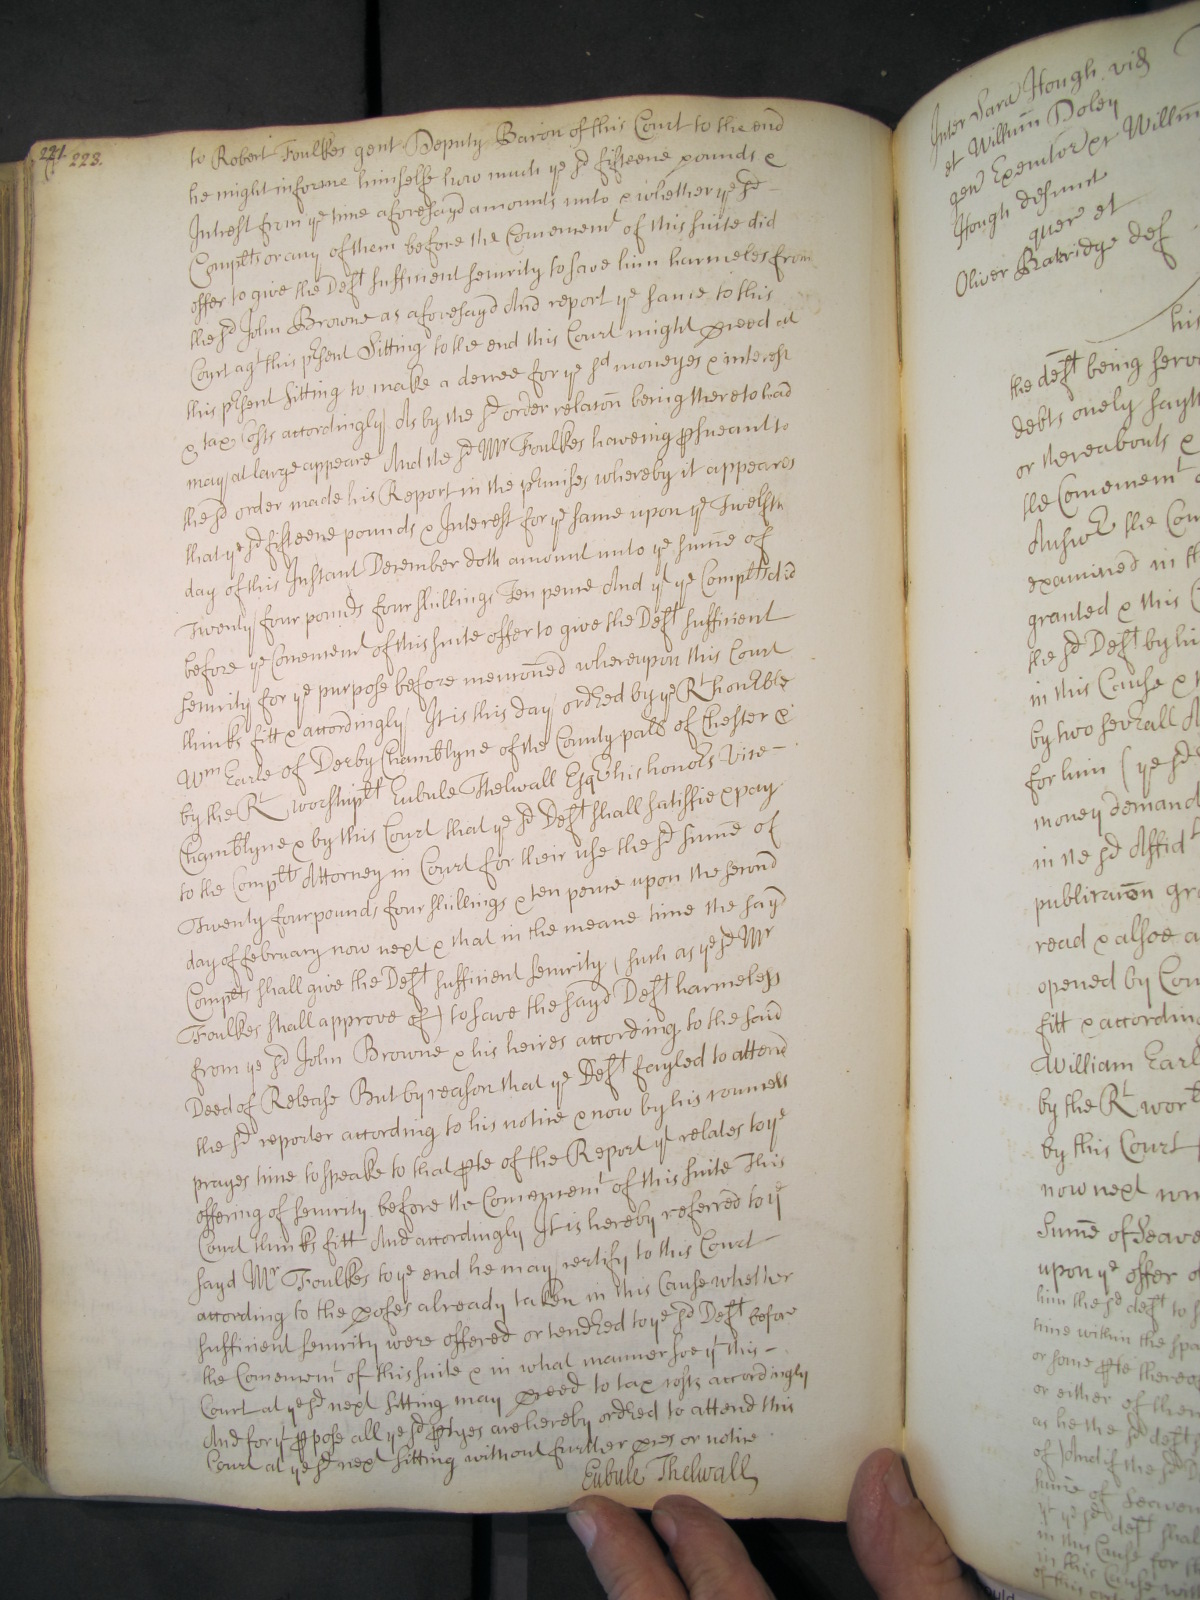 221.
223.
to Robert Foulkes gent Deputy Baron of this Court to the end
he might informe himselfe how much ye sd fifteene pounds &
Intrest from ye time aforesayd amounts unto & whether ye sd
Complts or any of them before the Comencemt of this suite did
offer to give the Deft sufficient security to save him harmeles from
the sd John Browne as aforesayd And report ye same to this
Court agt this psent Sitting to the end this Court might pceed at
this psent sitting to make a decree for ye sd moneyes & interest
& tax Costs accordingly As by the sd order relacon being thereto had
may at large appeare And the sd Mr Foulkes haveing psueant to
the sd order made his Report in the pmises whereby it appeares
that ye sd fifteene pounds & Interest for ye same upon ye Twelfth
day of this Instant December doth amount unto ye sume of
Twenty four pounds four shillings Ten pence And yt ye Complts did
before ye Comencemt of this suite offer to give the Deft sufficient
security for ye purpose before mencioned whereupon this Court
thinks fitt & accordingly It is this day ordred by ye Rt honble
Wm Earle of Derby Chamblyne of the County pald of Chester &
by the Rt worshipll Eubule Thelwall Esqe his honors Vice-
Chamblyne & by this Court that ye sd Deft shall satisfie & pay
to the Complts Attorney in Court for their use the sd sume of
Twenty four pounds four shillings & ten pence upon the second
day of February now next & that in the meane time the sayd
Complts shall give the Deft sufficient security (such as ye sd Mr
Foulkes shall approve of) to save the sayd Deft harmeless
from ye sd John Browne & his heires according to the said
Deed of Release But by reason that ye Deft fayled to attend
the sd reporter according to his notice & now by his councell
prayes time to speake to that pte of the Report yt relates to ye
offering of security before the Comencemt of this suite This
Court thinks fitt And accordingly It is hereby referred to ye
sayd Mr Foulkes to ye end he may certify to this Court
according to the pofes already taken in this Cause whether
sufficient security were offered or tendred to ye sd Deft before
the Comencemt of this suite & in what manner soe yt this -
Court at ye sd next Sitting may pceed to tax costs accordingly
And for yt ppose all ye sd ptyes are hereby ordred to attend this
Court at ye sd next sitting without further pces or notice.
Eubule Thelwall
Inter Sara Hough vid
et Willum Doley
gen Executor Willm
Hough defunct
quer et
Oliver Batridge def
his
the deft being serv
debts onely sayth
or thereabouts &
the Comencemt
Answr the Com
examined in th
granted & this C
the sd Deft by hi
in this Cause &
by two severall A
for him (ye sd
money demand
in ye sd Affid
publicacon gra
read & alsoe a
opened by Cou
fitt & accordin
William Earl
by the Rt wor
by this Court
now next
Sume of Seave
upon ye offer o
him the sd deft to s
time within the spa
or some pte thereo
or either of them
as he the sd deft
of) And if the sd
sume of Seaven
yt ye sd deft shal
in this Cause for
in this Cause